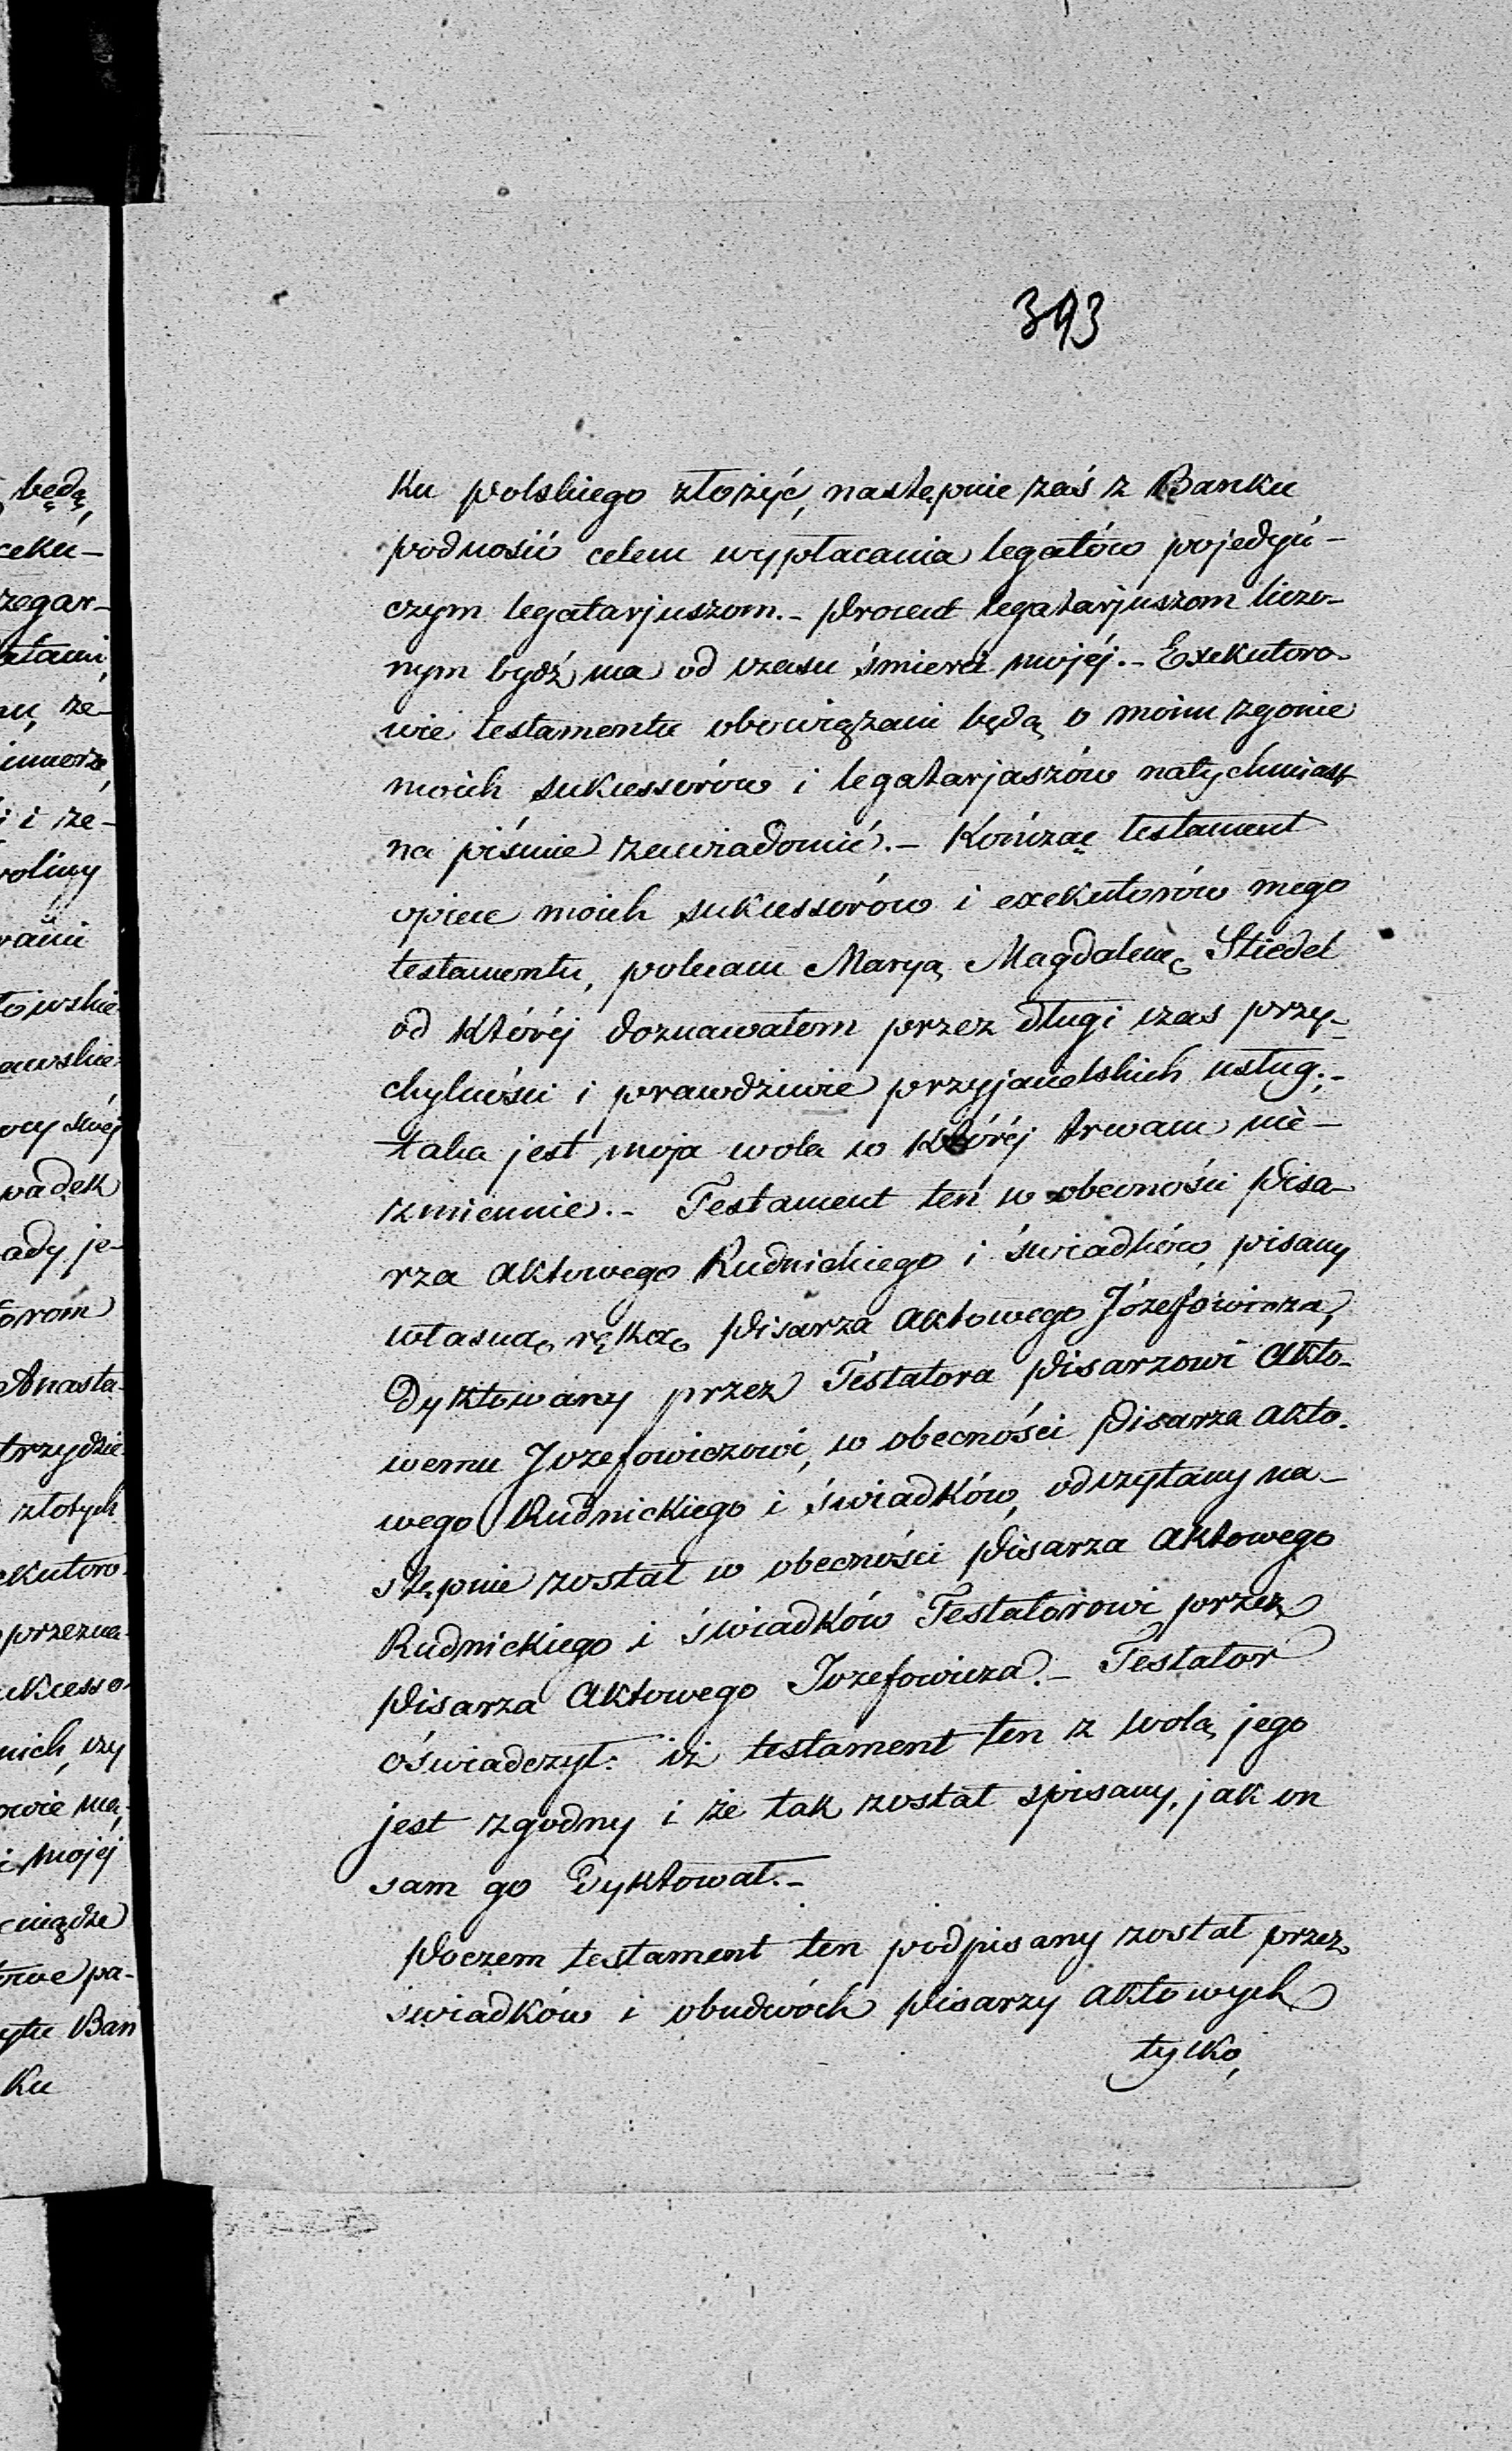 393
ku polskiego złożyć, następnie zaś z Banku
podnosić celem wypłacania legatów pojedyń-
czym legatarjuszom.- Procent legatarjuszom liczo-
nym bydź ma od czasu śmierci mojéj.- Exekutoro-
wie testamentu obowiązani będą o moim zgonie
moich sukcessorów i legatarjaszów natychmiast
na piśmie zawiadomić.- Kończąc testament
opiece moich sukcessorów i exekutorów mego
testamentu, polecam Maryą Magdalenę Stiedel
od któréj doznawałem przez długi czas przy-
chylności i prawdziwie przyjacielskich usług;-
taka jest moja wola w któréj trwam nie-
zmiennie.- Testament ten w obecności Pisa-
rza Aktowego Rudnickiego i świadków, pisany
własną ręką Pisarza Aktowego Józefowicza,
Dyktowany przez Testatora Pisarzowi Akto-
wemu Jozefowiczowi, w obecności Pisarza Akto-
wego Rudnickiego i świadków, odczytany na-
stępnie został w obecności Pisarza Aktowego
Rudnickiego i świadków Testatorowi przez
Pisarza Aktowego Jozefowicza.- Testator
oświadczył: iż testament ten z wolą jego
jest zgodny i że tak został spisany, jak on
sam go Dyktował.-
Poczem testament ten podpisany został przez
świadków i obudwóch Pisarzy Aktowych
tylko,
będą,
zegar-
że-
i że-
padek
ady je-
Anasta-
trzydzie
złotych
ekutoro-
przezna-
ukcesso-
nich, czy
mojej
pa-
Ban
ku